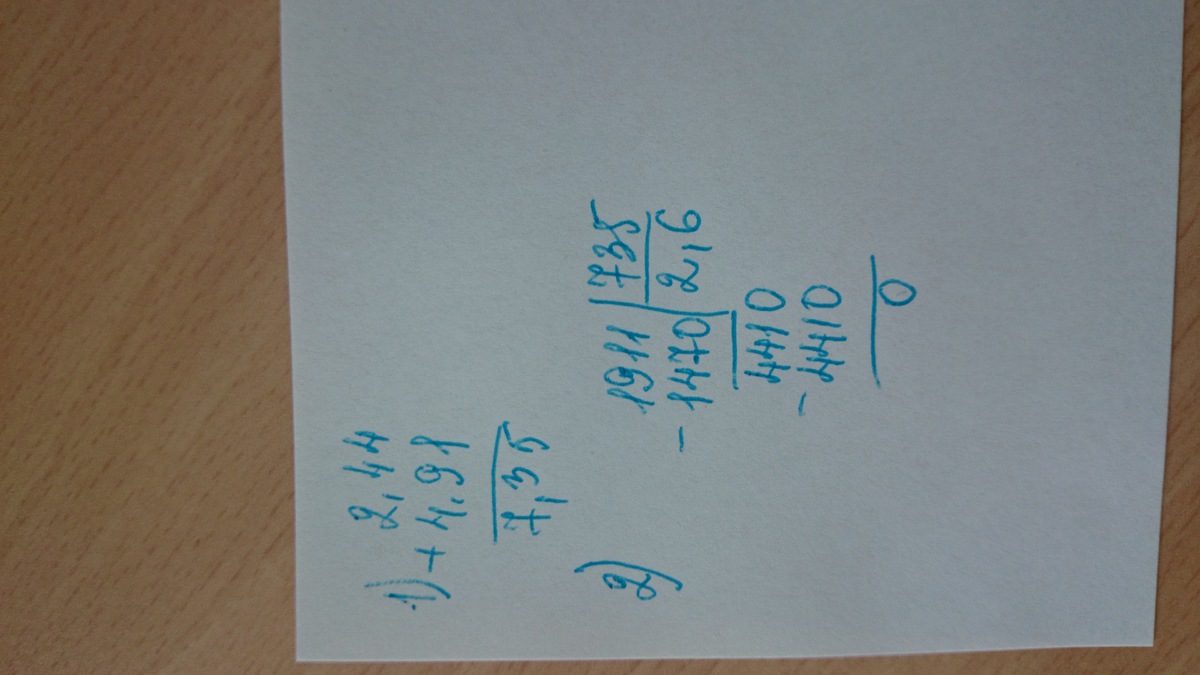 1) 2,44
+ 4,91
7,35
2) 1911 | 735
- 1470 | 2,6
4410
- 4410
0